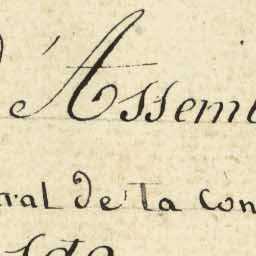 d'Assem
ral de la Con